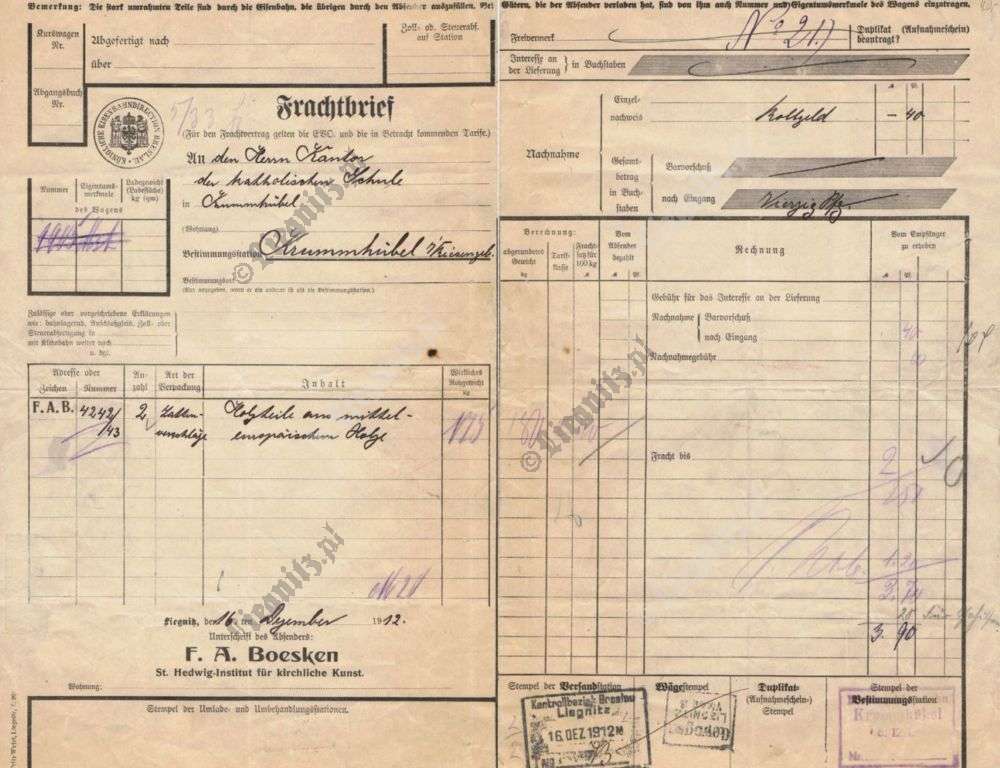 Bemerkung: Die stark umrahmten Teile sind durch die Eisenbahn, die übrigen durch den Absender auszufüllen. Bei Gütern, die der Absender verladen hat, sind von ihm auch Nummer und Eigentumsmerkmale des Wagens einzutragen.
Kurswagen
Nr.
Abgefertigt nach
über
Zoll- od. Steuerabf.
auf Station
Abgangsbuch
Nr.
KÖNIGLICHE EISENBAHNDIRECTION BRESLAU
Frachtbrief
(Für den Frachtvertrag gelten die EVO. und die in Betracht kommenden Tarife.)
An den Herrn Kantor
der katholischen Schule
in Krummhübel
(Wohnung)
Bestimmungsstation Krummhübel i/Riesengeb.
Bestimmungsort
Nummer
Eigentums-
merkmale
Ladegewicht
(Ladefläche)
kg (qm)
des Wagens
Zulässige oder vorgeschriebene Erklärungen
wie: bahnlagernd, Anschlußgleis, Zoll- oder
Steuerabfertigung in
mit Kleinbahn weiter nach
u. dgl.
Adresse oder
Zeichen
Nummer
An-
zahl
Art der
Verpackung
Inhalt
Wirkliches
Rohgewicht
kg
F. A. B. 4242/43 2 Latten-verschläge
Holzteile aus mittel-
europäischem Holze
175
Liegnitz, den 16. ten Dezember 1912.
Unterschrift des Absenders:
F. A. Boesken
St. Hedwig-Institut für kirchliche Kunst.
Wohnung:
Stempel der Umlade- und Umbehandlungsstationen.
Freivermerk
No 21.)
Duplikat (Aufnahmeschein)
beantragt?
Interesse an
der Lieferung
in Buchstaben
Nachnahme
Einzel-
nachweis
Rollgeld
— 40
Gesamt-
betrag
in Buch-
staben
Barvorschuß
nach Eingang
Vierzig Pfg
Berechnung:
abgerundetes
Gewicht
kg
Tarif-
klasse
Fracht-
satz für
100 kg
Vom
Absender
bezahlt
Rechnung
Vom Empfänger
zu erheben
Gebühr für das Interesse an der Lieferung
Nachnahme
Barvorschuß
nach Eingang
40
Nachnahmegebühr
10
Fracht bis
3.90
Stempel der Versandstation
Wägestempel
Duplikat-
(Aufnahmeschein-)
Stempel
Stempel der
Bestimmungsstation
Kontrollbezirk Breslau
Liegnitz
16 DEZ 1912 N
Krummhübel
© Liegnitz.pl
© Liegnitz.pl
© Liegnitz.pl